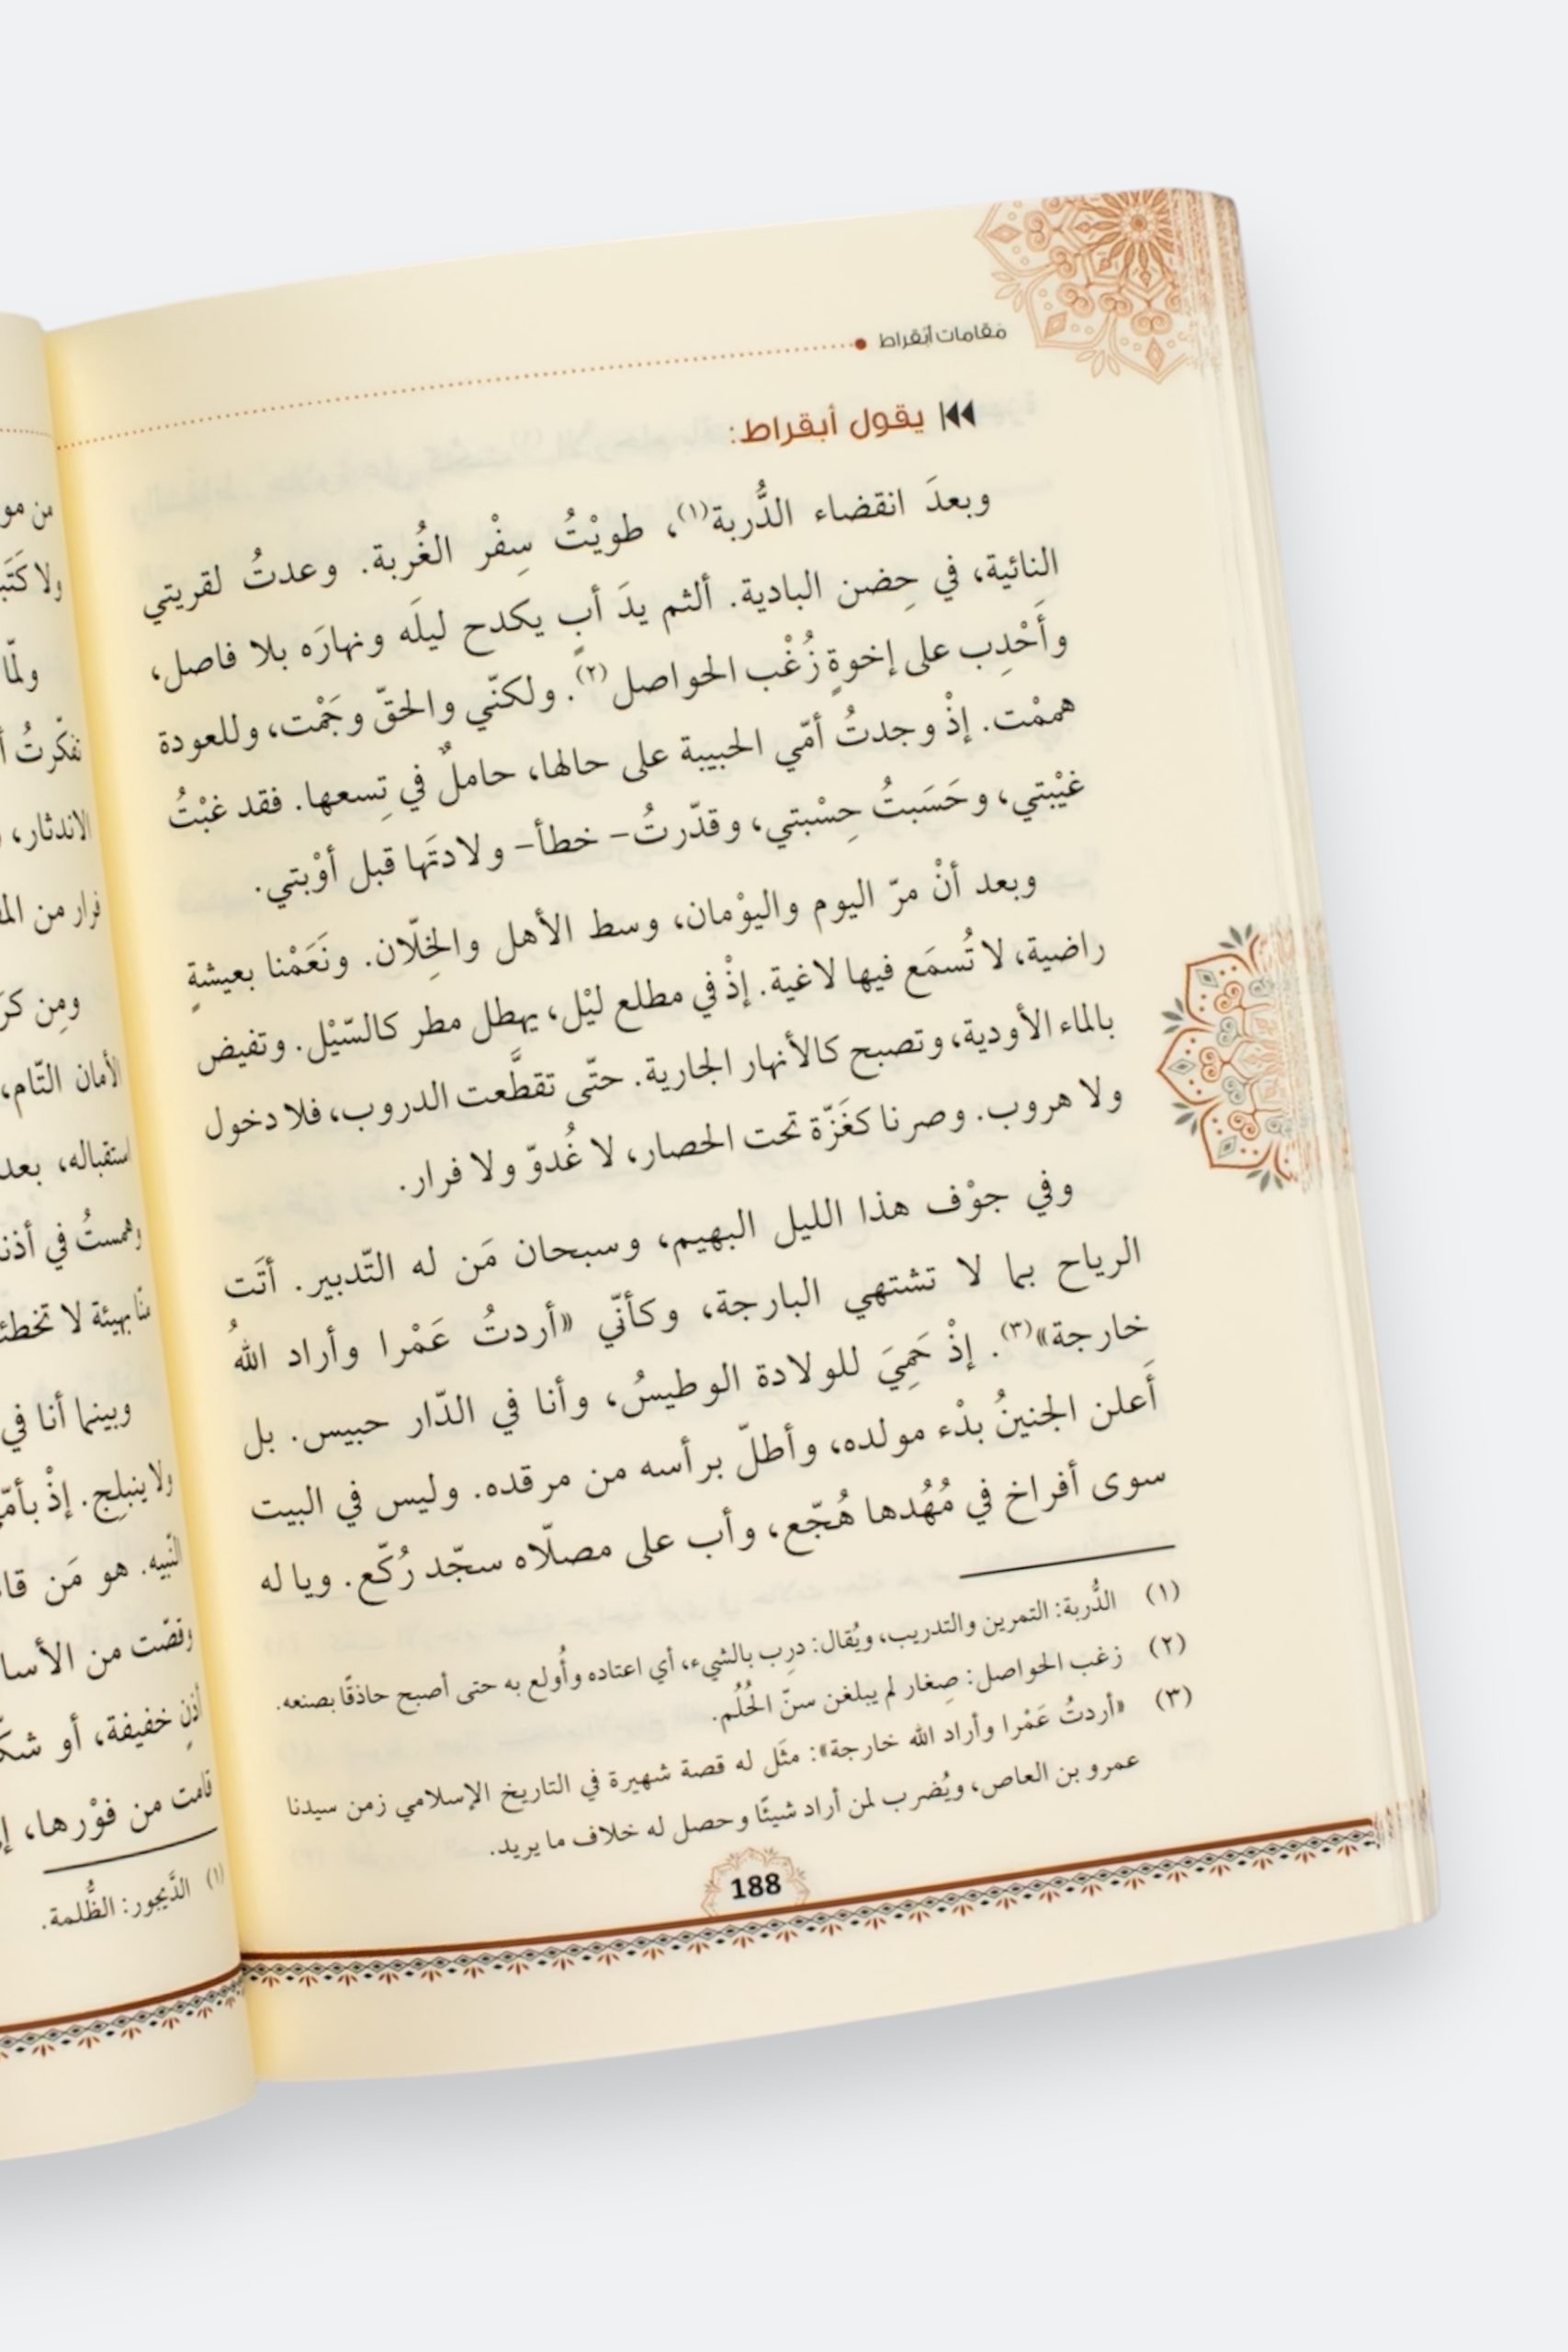 مقامات أبقراط
يقول أبقراط:
وبعدَ انقضاء الدُّربة(١)، طويْتُ سِفْر الغُربة. وعدتُ لقريتي
النائية، في حِضن البادية. ألثم يدَ أبٍ يكدح ليلَه ونهارَه بلا فاصل،
وأَحْدِب على إخوةٍ زُغْب الحواصل(٢). ولكنّي والحقّ وجَمْت، وللعودة
هممْت. إذْ وجدتُ أمّي الحبيبة على حالها، حاملٌ في تِسعها. فقد غبْتُ
غيْبتي، وحَسَبتُ حِسْبتي، وقدّرتُ- خطأ- ولادتَها قبل أوْبتي.
وبعد أنْ مرّ اليوم واليوْمان، وسط الأهل والخِلّان. ونَعَمْنا بعيشةٍ
راضية، لا تُسمَع فيها لاغية. إذْ في مطلع ليْل، يهطل مطر كالسّيْل. وتفيض
بالماء الأودية، وتصبح كالأنهار الجارية. حتّى تقطَّعت الدروب، فلا دخول
ولا هروب. وصرنا كغَزّة تحت الحصار، لا غُدوّ ولا فرار.
وفي جوْف هذا الليل البهيم، وسبحان مَن له التّدبير. أتَت
الرياح بما لا تشتهي البارجة، وكأنّي «أردتُ عَمْرا وأراد اللهُ
خارجة»(٣). إذْ حَمِيَ للولادة الوطيسُ، وأنا في الدّار حبيس. بل
أَعلن الجنينُ بدْء مولده، وأطلّ برأسه من مرقده. وليس في البيت
سوى أفراخ في مُهُدها هُجّع، وأب على مصلّاه سجّد رُكّع. ويا له
(١) الدُّربة: التمرين والتدريب، ويُقال: درِب بالشيء، أي اعتاده وأُولع به حتى أصبح حاذقًا بصنعه.
(٢) زغب الحواصل: صِغار لم يبلغن سنّ الحُلُم.
(٣) «أردتُ عَمْرا وأراد الله خارجة»: مثَل له قصة شهيرة في التاريخ الإسلامي زمن سيدنا
عمرو بن العاص، ويُضرب لمن أراد شيئًا وحصل له خلاف ما يريد.
188
من مو
ولا كَتَب
ولمّا
تفكّرتُ أ
الاندثار،
فرار من الم
ومِن كرَ
الأمان التّام،
استقباله، بعد
وهمستُ في أذن
منّا بهيئة لا تخطئ
وبينما أنا في
ولا ينبلِج. إذْ بأمّ
النّبيه. هو مَن قا
وقصّت من الأسا
أذنٍ خفيفة، أو شك
قامت من فوْرها، إ
(١) الدَّيجور: الظُّلمة.